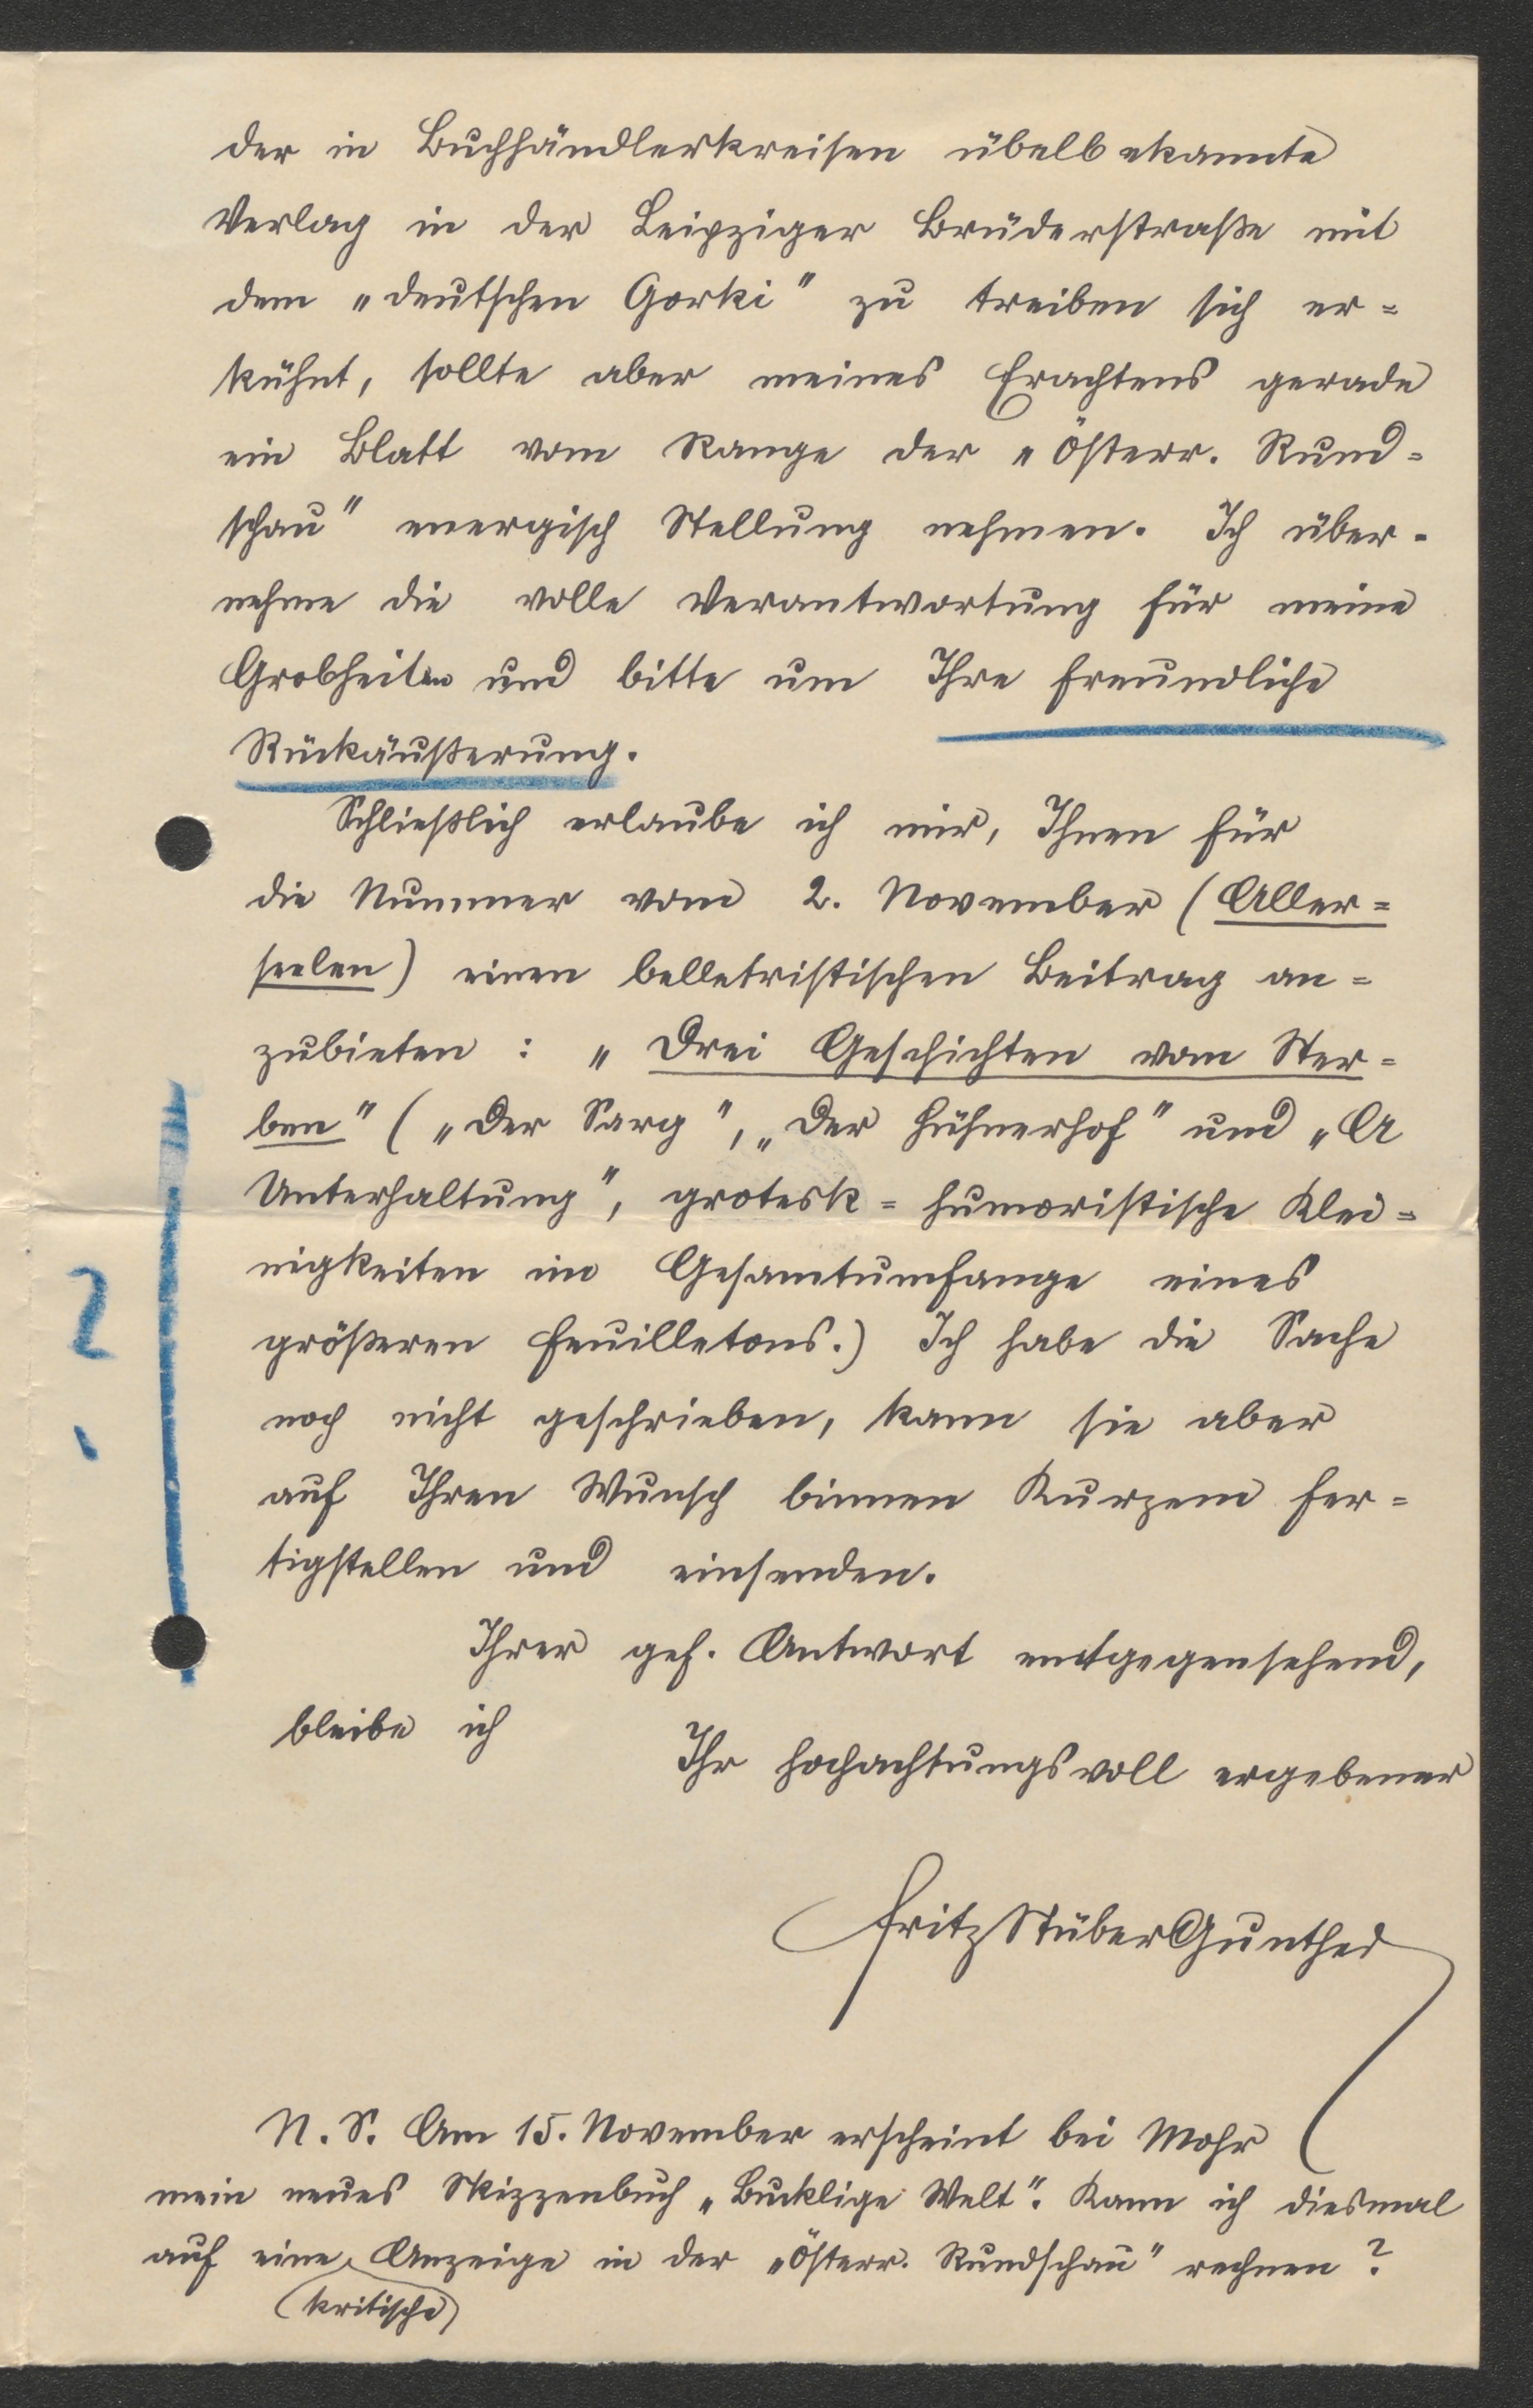 der in Buchhändlerkreisen übelbekannte
Verlag in der Leipziger Brüderstraße mit
dem „deutschen Gorki" zu treiben sich er=
kühnt, sollte aber meines Erachtens gerade
ein Blatt vom Range der „Österr. Rund=
schau" energisch Stellung nehmen. Ich über=
nehme die volle Verantwortung für meine
Grobheiten und bitte um Ihre freundliche
Rückäußerung.
Schließlich erlaube ich mir, Ihnen für
die Nummer vom 2. November (Aller=
seelen) einen belletristischen Beitrag an=
zubieten: „Drei Geschichten vom Ster=
ben" („Der Sarg", „Der Hühnerhof" und „A
Unterhaltung", grotesk=humoristische Klei=
nigkeiten im Gesamtumfange eines
größeren Feuilletons.) Ich habe die Sache
noch nicht geschrieben, kann sie aber
auf Ihren Wunsch binnen Kurzem fer=
tigstellen und einsenden.
Ihrer gef. Antwort entgegensehend,
bleibe ich
Ihr hochachtungsvoll ergebener
Fritz Stüber Gunther
N. S. Am 15. November erscheint bei Mohr
mein neues Skizzenbuch „Bucklige Welt". Kann ich diesmal
auf eine Anzeige in der „Österr. Rundschau" rechnen?
(kritische)
?